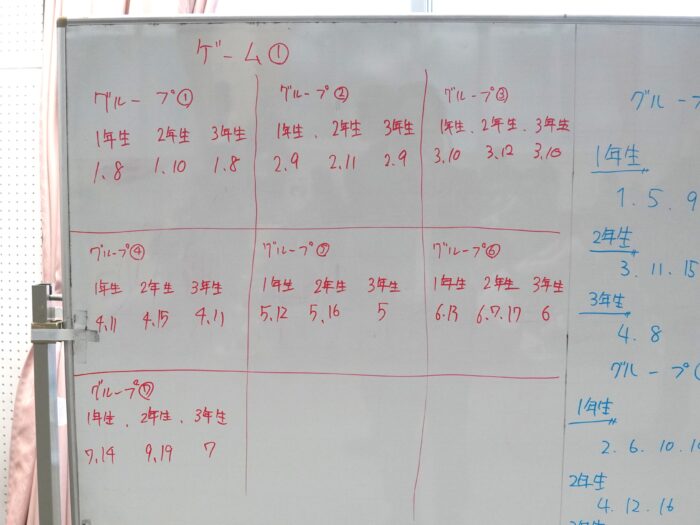 ゲーム①
グループ①
1年生 2年生 3年生
1.8 1.10 1.8
グループ②
1年生、2年生 3年生
2.9 2.11 2.9
グループ③
1年生、2年生、3年生
3.10 3.12 3.10
グループ④
1年生 2年生 3年生
4.11 4.15 4.11
グループ⑤
1年生 2年生 3年生
5.12 5.16 5
グループ⑥
1年生 2年生 3年生
6.13 6.7.17 6
グループ⑦
1年生、2年生、3年生
7.14 9.19 7
グループ
1年生
1.5.9
2年生
3.11.15
3年生
4.8
グループ
1年生
2.6.10
2年生
4.12.16